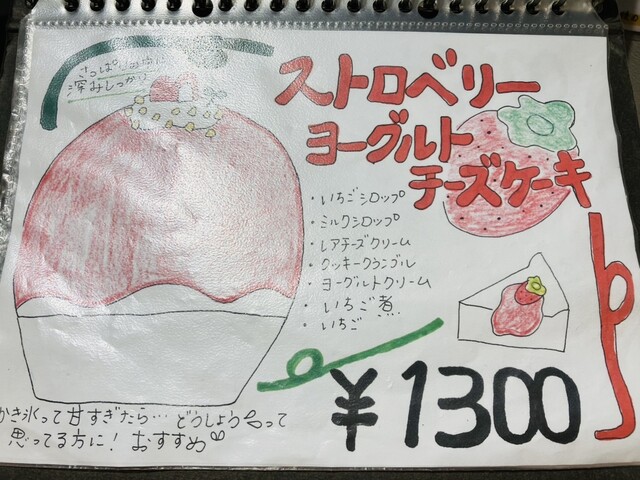 さっぱり
深みしっかり
ストロベリー
ヨーグルト
チーズケーキ
・いちごシロップ
・ミルクシロップ
・レアチーズクリーム
・クッキークランブル
・ヨーグルトクリーム
・いちご煮
・いちご
¥1300
かき氷って甘すぎたら…どうしようって
思ってる方に!おすすめ♡